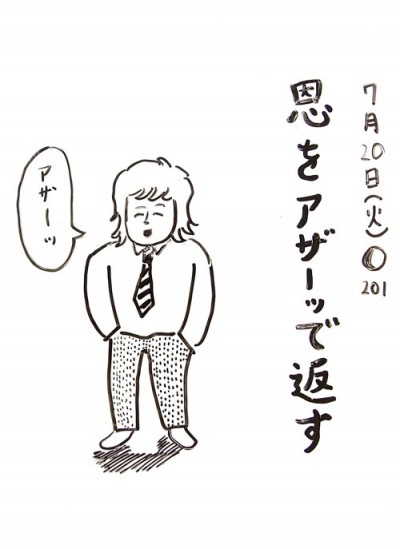 7月20日(火)●201
恩をアザーッで返す
アザーッ